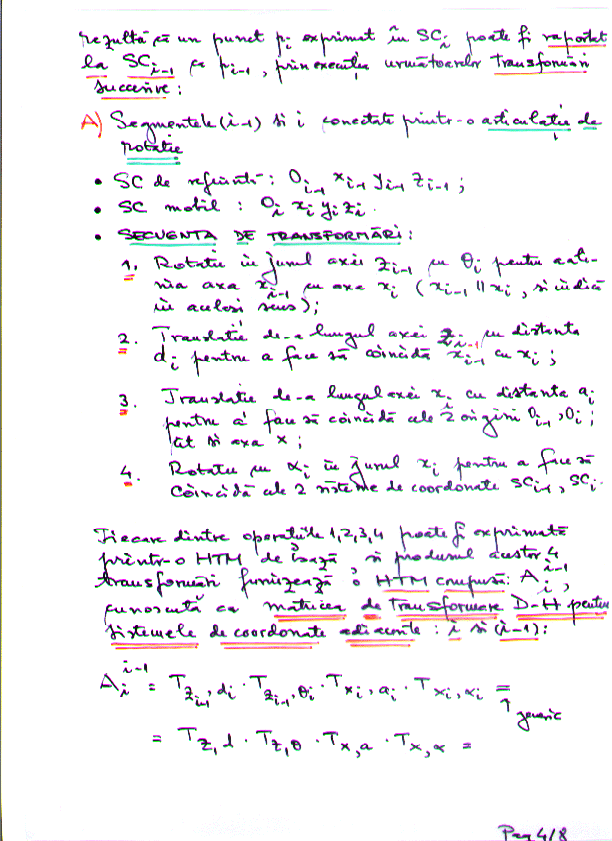 rezultă că un punct pi exprimat în SCi poate fi raportat
la SCi-1 ca pi-1, prin execuția următoarelor transformări
succesive:
A) Segmentele (i-1) și i conectate printr-o articulație de
rotație
• SC de referință: Oi-1 xi-1 yi-1 zi-1;
• SC mobil: Oi xi yi zi.
• SECVENȚA DE TRANSFORMĂRI:
1. Rotație în jurul axei zi-1 cu θi pentru a ali-
nia axa xi-1 cu axa xi (xi-1 || xi, și indică
în același sens);
2. Translație de-a lungul axei zi-1 cu distanța
di pentru a face să coincidă xi-1 cu xi;
3. Translație de-a lungul axei xi cu distanța ai
pentru a face să coincidă cele 2 origini Oi-1, Oi;
cât și axa x;
4. Rotație cu αi în jurul xi pentru a face să
coincidă cele 2 sisteme de coordonate SCi-1, SCi.
Fiecare dintre operațiile 1,2,3,4 poate fi exprimată
printr-o HTM de bază, și produsul acestor 4
transformări furnizează o HTM compusă: Ai^i-1,
cunoscută ca matricea de transformare D-H pentru
sistemele de coordonate adiacente: i și (i-1):
Ai^i-1 = Tzi-1,di · Tzi-1,θi · Txi,ai · Txi,αi =
↑ generic
= Tz,d · Tz,θ · Tx,a · Tx,α =
Pag 4/8